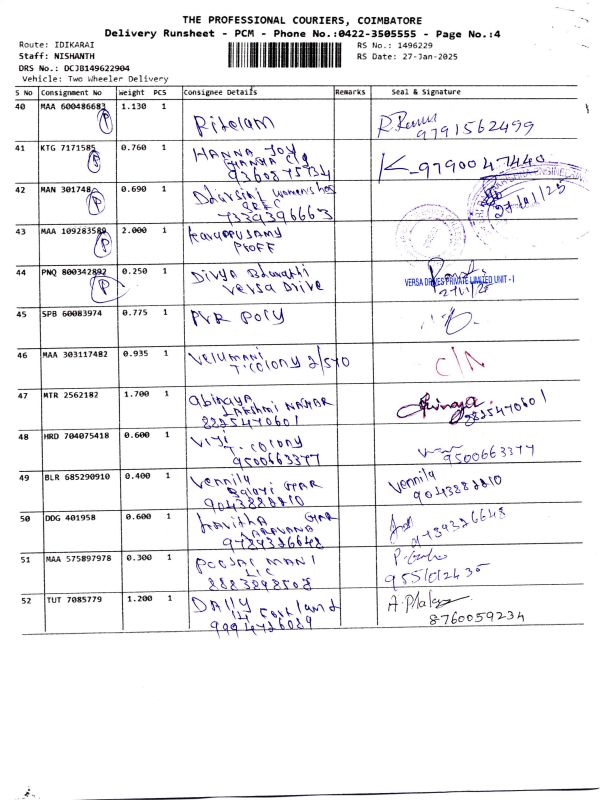 THE PROFESSIONAL COURIERS, COIMBATORE
Delivery Runsheet - PCM - Phone No.:0422-3505555 - Page No.:4
Route: IDIKARAI
RS No.: 1496229
Staff: NISHANTH
RS Date: 27-Jan-2025
DRS No.: DCJB149622904
Vehicle: Two Wheeler Delivery
S No Consignment No Weight PCS Consignee Details Remarks Seal & Signature
40 MAA 600486683 1.130 1
P
9791562499
41 KTG 7171585 0.760 1 HANNA JOY
9360875734
K-9790047440
42 MAN 301748 0.690 1 Dharsini womens hos
7339396663
27/01/25
43 MAA 109283589 2.000 1 Karuppusamy
P
PROFF
44 PNQ 800342892 0.250 1 Divya Bharathi
P
Versa Drive
VERSA DRIVES PRIVATE LIMITED UNIT - I
45 SPB 60083974 0.775 1 PVR Poly
46 MAA 303117482 0.935 1 VELUMANI
T.COLONY 2/570
47 MTR 2562182 1.700 1 Abinaya
Lakshmi NAGAR
8825470601
8825470601
48 HRD 704075418 0.600 1 Viji
T. COLONY
9500663377
9500663377
49 BLR 685290910 0.400 1 Vennila
Balaji GAR
9043888810
Vennila
50 DDG 401958 0.600 1
9789326648
51 MAA 575897978 0.300 1 POOSAI MANI
LIC
8883898508
52 TUT 7085779 1.200 1 DAlly
9994726089
8760059234